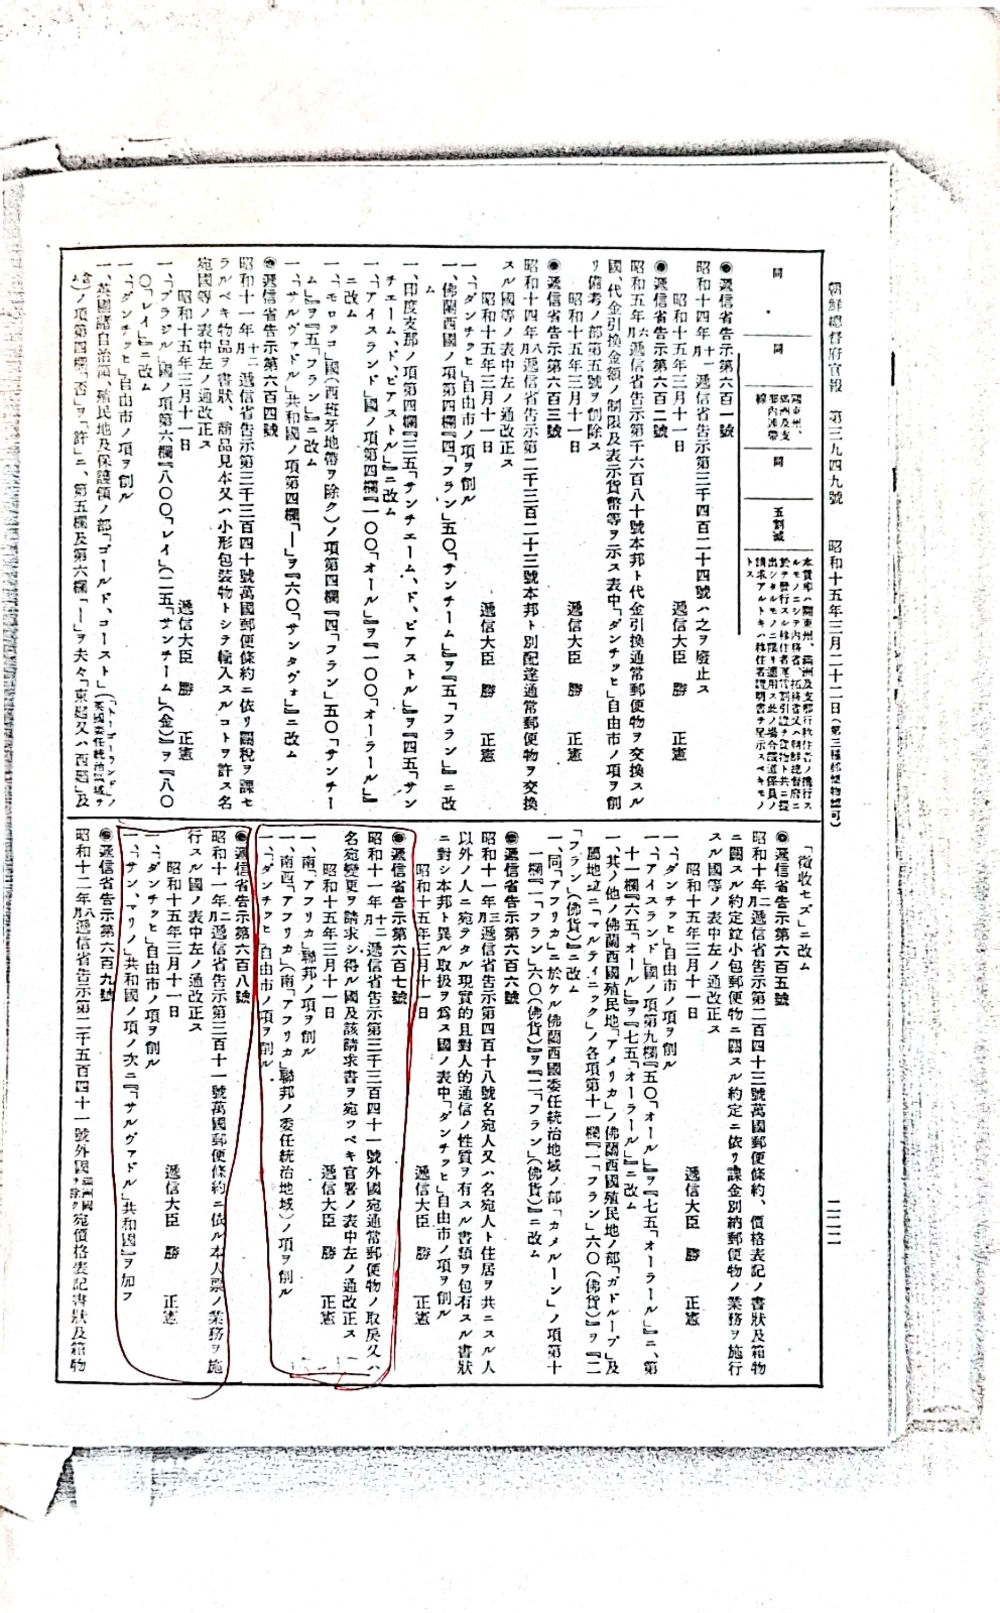 朝鮮總督府官報 第三九四九號 昭和十五年三月二十二日(第三種郵便物認可) 二二二
同
同
關東州、滿洲及支那內地帶線
同
五割減
本賃率ハ關東州、滿洲及支那行移住者ノ携行ス
ルモノニシテ內務省、拓務省又ハ朝鮮總督府ニ
於テ發行スル移住者運賃割引證ヲ貨物ト共ニ提
出シタルモノニ限リ適用ス此ノ場合鐵道係員ノ
請求アルトキハ移住者證明書ヲ呈示スベキモノ
トス
◉遞信省告示第六百一號
昭和十四年十一月遞信省告示第三千四百二十四號ハ之ヲ廢止ス
昭和十五年三月十一日
遞信大臣 勝 正憲
◉遞信省告示第六百二號
昭和五年六月遞信省告示第千六百八十號本邦ト代金引換通常郵便物ヲ交換スル
國、代金引換金額ノ制限及表示貨幣等ヲ示ス表中「ダンチッヒ」自由市ノ項ヲ創
リ備考ノ部第五號ヲ削除ス
昭和十五年三月十一日
遞信大臣 勝 正憲
◉遞信省告示第六百三號
昭和十四年八月遞信省告示第二千三百二十三號本邦ト別配達通常郵便物ヲ交換
スル國等ノ表中左ノ通改正ス
昭和十五年三月十一日
遞信大臣 勝 正憲
一、「ダンチッヒ」自由市ノ項ヲ創ル
一、佛蘭西國ノ項第四欄『四「フラン」五〇「サンチーム」』ヲ『五「フラン」』ニ改
ム
一、印度支那ノ項第四欄『三五「サンチエーム、ド、ピアストル」』ヲ『四五「サン
チエーム、ド、ピアストル」』ニ改ム
一、「アイスランド」國ノ項第四欄『一〇〇「オール」』ヲ『一〇〇「オーラール」』
ニ改ム
一、「モロッコ」國(西班牙地帶ヲ除ク)ノ項第四欄『四「フラン」五〇「サンチー
ム」』ヲ『五「フラン」』ニ改ム
一、「サルヴァドル」共和國ノ項第四欄「ー」ヲ『六〇「サンタヴォ」』ニ改ム
◉遞信省告示第六百四號
昭和十一年十二月遞信省告示第三千三百四十號萬國郵便條約ニ依リ關稅ヲ課セ
ラルベキ物品ヲ書狀、商品見本又ハ小形包裝物トシテ輸入スルコトヲ許ス名
宛國等ノ表中左ノ通改正ス
昭和十五年三月十一日
遞信大臣 勝 正憲
一、「ブラジル」國ノ項第六欄『八〇〇「レイ」(二五「サンチーム」(金))』ヲ『八〇
〇「レイ」』ニ改ム
一、「ダンチッヒ」自由市ノ項ヲ創ル
一、英國諸自治領、殖民地及保護領ノ部「ゴールド、コースト」(「トーゴーランド」ノ英國委任統治區域ヲ
含ム)ノ項第四欄「否」ヲ「許」ニ、第五欄及第六欄「ー」ヲ夫々「東廻又ハ西廻」及
「徵收セズ」ニ改ム
◉遞信省告示第六百五號
昭和十年二月遞信省告示第二百四十三號萬國郵便條約、價格表記ノ書狀及箱物
ニ關スル約定竝小包郵便物ニ關スル約定ニ依リ課金別納郵便物ノ業務ヲ施行
スル國等ノ表中左ノ通改正ス
昭和十五年三月十一日
遞信大臣 勝 正憲
一、「ダンチッヒ」自由市ノ項ヲ創ル
一、「アイスランド」國ノ項第九欄『五〇「オール」』ヲ『七五「オーラール」』ニ、第
十一欄『六五「オール」』ヲ『七五「オーラール」』ニ改ム
一、其ノ他ノ佛蘭西國殖民地「アメリカ」ノ佛蘭西國殖民地ノ部「ガドループ」及
屬地竝ニ「マルティニック」ノ各項第十一欄『一「フラン」六〇(佛貨)』ヲ『二
「フラン」(佛貨)』ニ改ム
一、同「アフリカ」ニ於ケル佛蘭西國委任統治地域ノ部「カメルーン」ノ項第十
一欄『一「フラン」六〇(佛貨)』ヲ『二「フラン」(佛貨)』ニ改ム
◉遞信省告示第六百六號
昭和十一年三月遞信省告示第四百十八號名宛人又ハ名宛人ト住居ヲ共ニスル人
以外ノ人ニ宛テタル現實的且對人的通信ノ性質ヲ有スル書類ヲ包有スル書狀
ニ對シ本邦ト異ル取扱ヲ爲ス國ノ表中「ダンチッヒ」自由市ノ項ヲ創ル
昭和十五年三月十一日
遞信大臣 勝 正憲
◉遞信省告示第六百七號
昭和十一年十二月遞信省告示第三千三百四十一號外國宛通常郵便物ノ取戾又ハ
名宛變更ヲ請求シ得ル國及該請求書ヲ宛ツベキ官署ノ表中左ノ通改正ス
昭和十五年三月十一日
遞信大臣 勝 正憲
一、南「アフリカ」聯邦ノ項ヲ創ル
一、南西「アフリカ」(南「アフリカ」聯邦ノ委任統治地域)ノ項ヲ創ル
一、「ダンチッヒ」自由市ノ項ヲ創ル
◉遞信省告示第六百八號
昭和十一年二月遞信省告示第三百十一號萬國郵便條約ニ依ル本人票ノ業務ヲ施
行スル國ノ表中左ノ通改正ス
昭和十五年三月十一日
遞信大臣 勝 正憲
一、「ダンチッヒ」自由市ノ項ヲ創ル
一、「サン、マリノ」共和國ノ項ノ次ニ『「サルヴァドル」共和國』ヲ加フ
◉遞信省告示第六百九號
昭和十二年八月遞信省告示第二千五百四十一號外國(滿洲國ヲ除ク)宛價格表記書狀及箱物